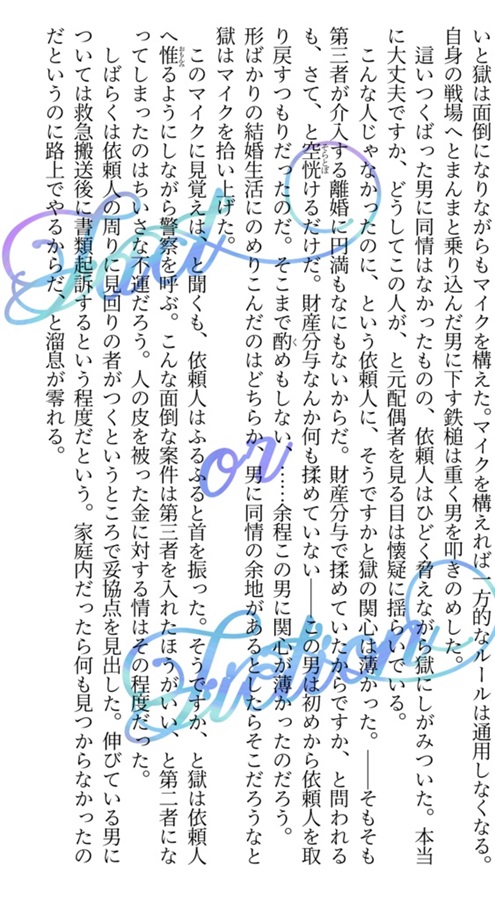 いと獄は面倒になりながらもマイクを構えた。マイクを構えれば一方的なルールは通用しなくなる。
自身の戦場へとまんまと乗り込んだ男に下す鉄槌は重く男を叩きのめした。
這いつくばった男に同情はなかったものの、依頼人はひどく脅えながら獄にしがみついた。本当
に大丈夫ですか、どうしてこの人が、と元配偶者を見る目は懐疑に揺らいでいる。
こんな人じゃなかったのに、という依頼人に、そうですかと獄の関心は薄かった。――そもそも
第三者が介入する離婚に円満もなにもないからだ。財産分与で揉めていたからですか、と問われる
も、さて、と空恍けるだけだ。財産分与なんか何も揉めていない――この男は初めから依頼人を取
り戻すつもりだったのだ。そこまで酌めもしない、……余程この男に関心が薄かったのだろう。
形ばかりの結婚生活にのめりこんだのはどちらか、男に同情の余地があるとしたらそこだろうなと
獄はマイクを拾い上げた。
このマイクに見覚えは、と聞くも、依頼人はふるふると首を振った。そうですか、と獄は依頼人
へ惟るようにしながら警察を呼ぶ。こんな面倒な案件は第三者を入れたほうがいい、と第二者にな
ってしまったのはちいさな不運だろう。人の皮を被った金に対する情はその程度だった。
しばらくは依頼人の周りに見回りの者がつくというところで妥協点を見出した。伸びている男に
ついては救急搬送後に書類起訴するという程度だという。家庭内だったら何も見つからなかったの
だというのに路上でやるからだ、と溜息が零れる。
Fact
or
Fiction